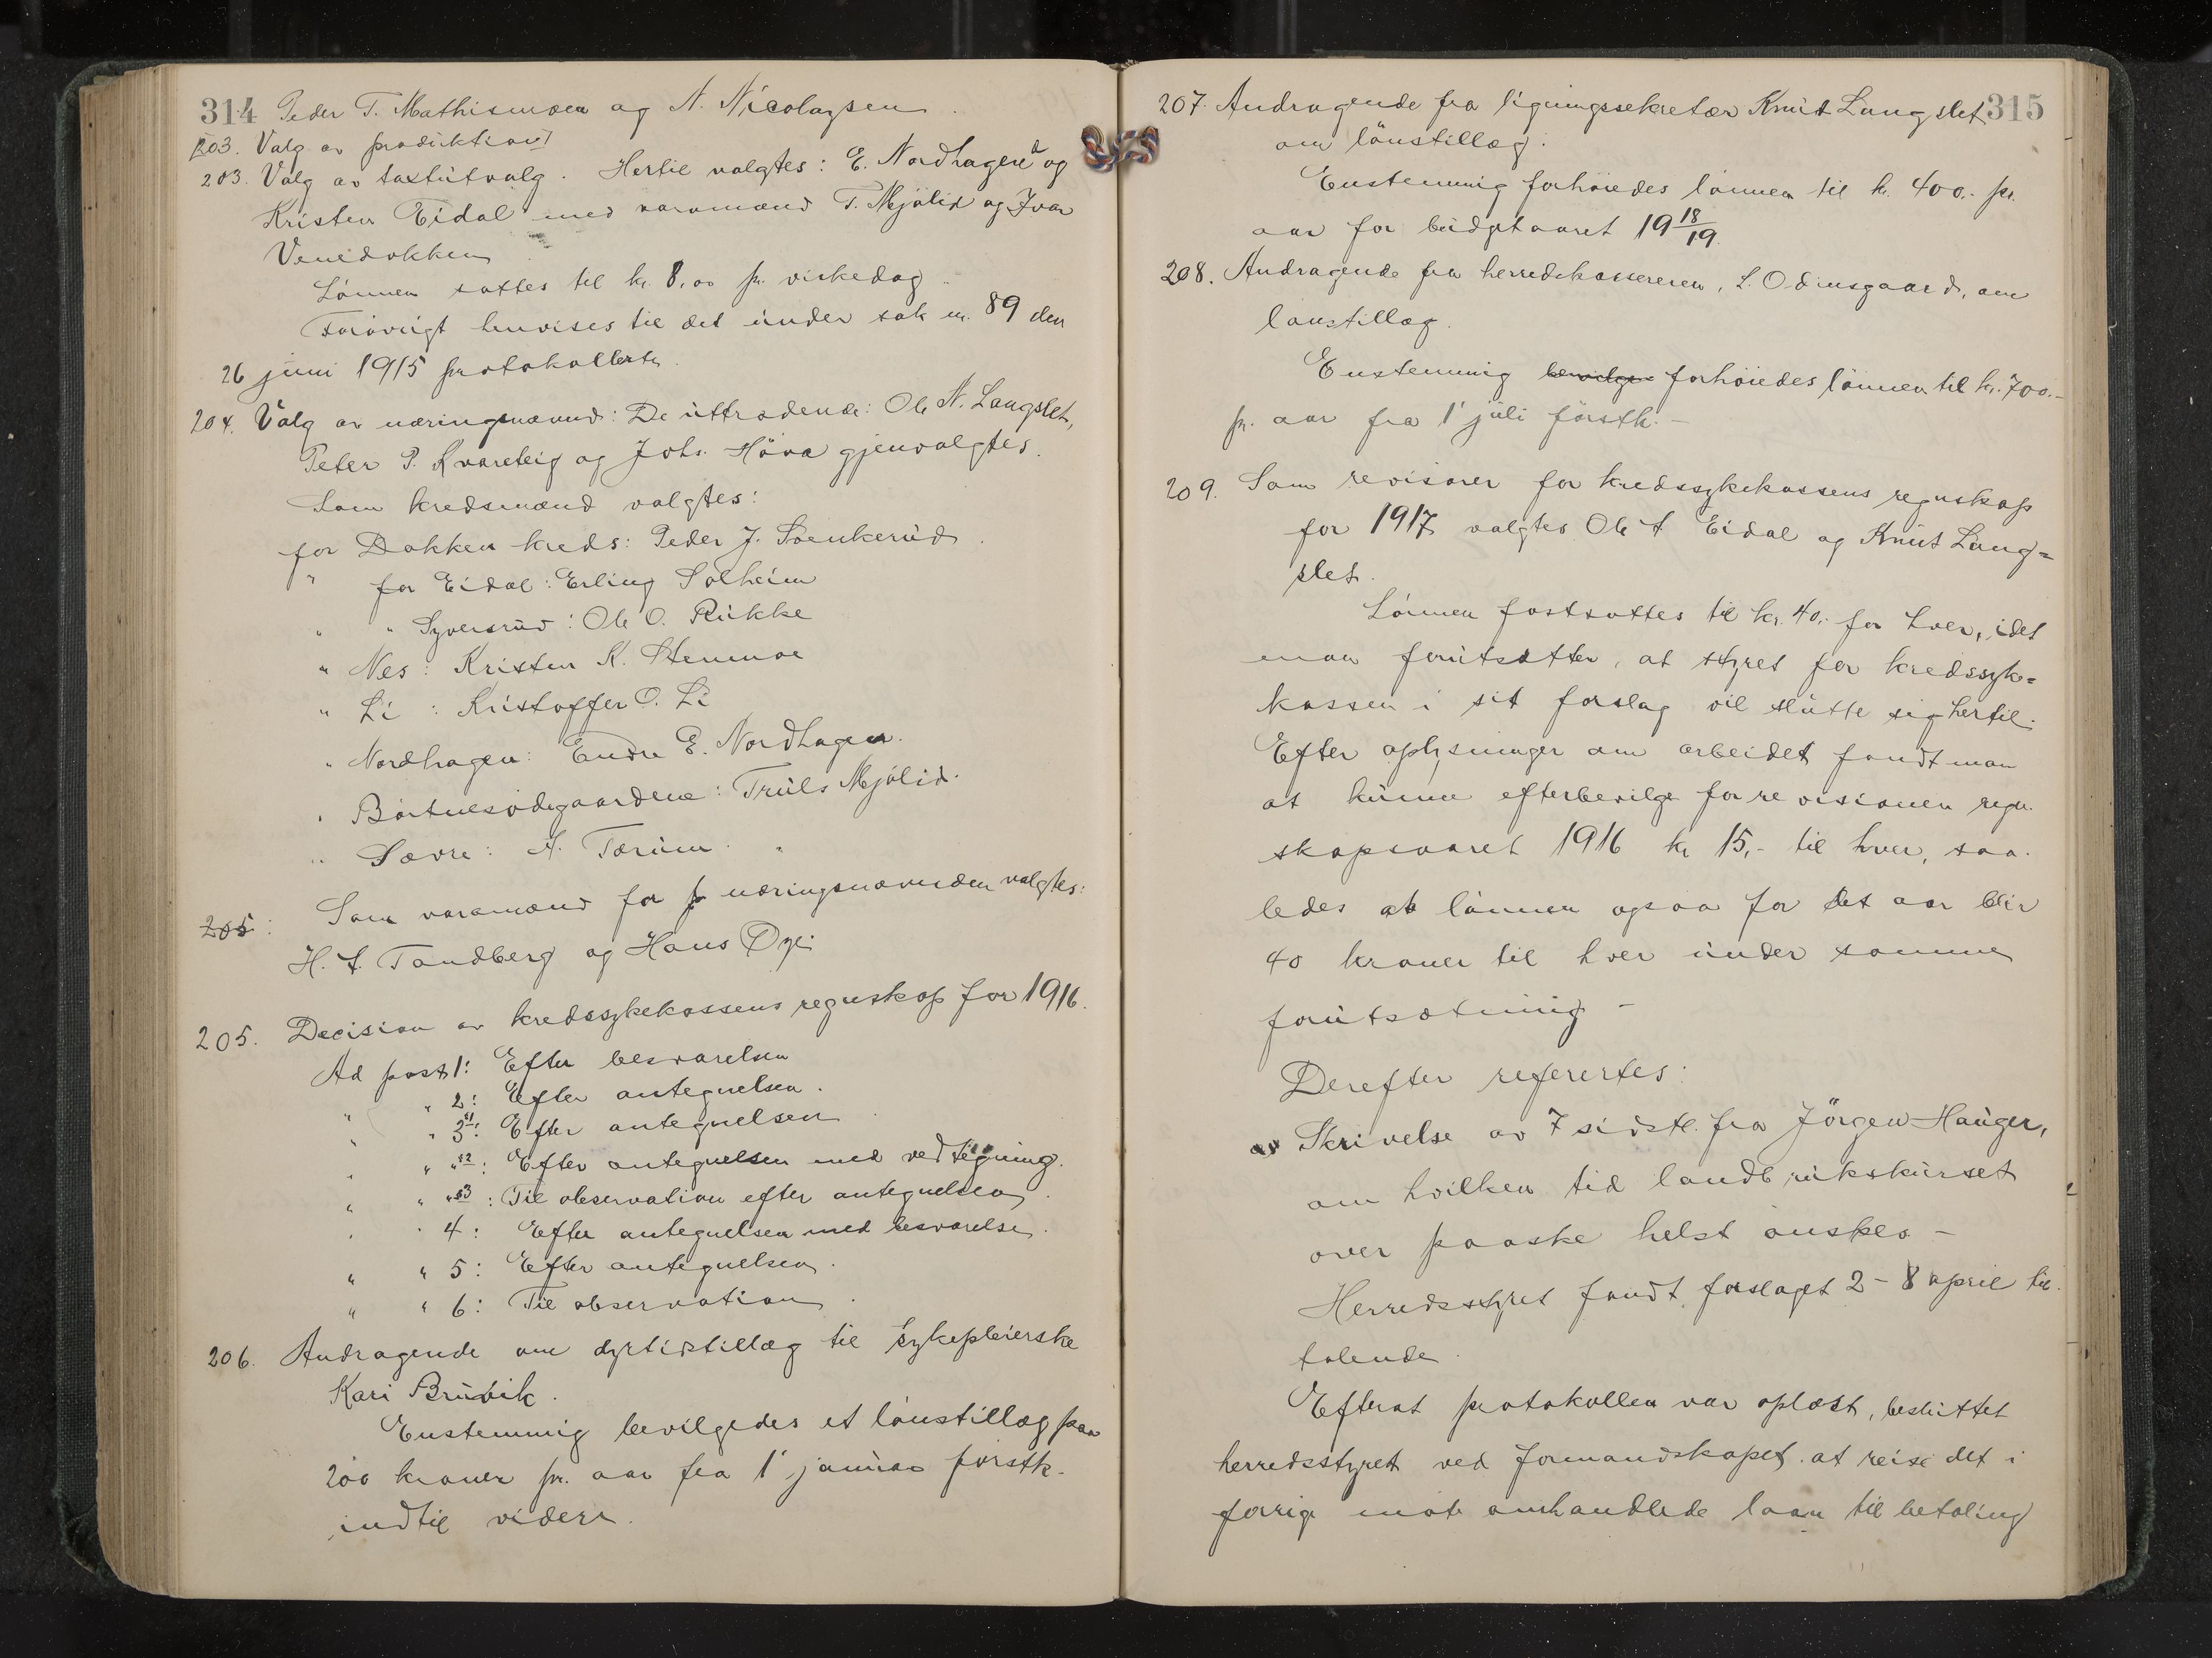 314 Peder T. Mathismoen og N. Nicolaysen
203. Valg av produktions
203. Valg av takstutvalg. Hertil valgtes: E. Nordhagen og
Kristen Eidal med varamænd T. Mjölid og Ivar
Venedokken
Lönnen sattes til kr. 8,00 pr. virkedag.
Forövrigt henvises til det under sak nr. 89 den
26 juni 1915 protokollerte.
204. Valg av næringsnævnd: De uttrædende: Ole N. Langslet,
Peter P. Kvareteig og Johs. Höva gjenvalgtes.
Som kredsmænd valgtes:
for Dokken kreds: Peder J. Svenkerud.
" for Eidal: Erling Solheim
" " Syversrud: Ole O. Rukke
" Nes: Kristen K. Stenmoe
" Li: Kristoffer O. Li
" Nordhagen: Endre E. Nordhagen.
" Börtnesödegaardene: Truls Mjölid.
" Sævre: A. Tærum. "
205: Som varamænd for næringsnævnden valgtes:
H. L. Tandberg og Hans Öye
205. Decision av kredssykekassens regnskap for 1916.
Ad post 1: Efter besvarelsen
" " 2: Efter antegnelsen.
" " 3 s1: Efter antegnelsen.
" " " s2: Efter antegnelsen med vedtegning.
" " " s3: Til observation efter antegnelsen.
" " 4: Efter antegnelsen med besvarelse.
" " 5: Efter antegnelsen.
" " 6: Til observation.
206. Andragende om dyrtidstillæg til sykepleierske
Kari Bruvik.
Enstemmig bevilgedes et lönstillæg paa
200 kroner pr. aar fra 1' januar förstk.
indtil videre.
207. Andragende fra ligningssekretær Knut Langslet 315
om lönstillæg.
Enstemmig forhöiedes lönnen til kr. 400,- pr.
aar for budgetaaret 19 18/19.
208. Andragende fra herredskassereren, L. Odinsgaard, om
lönstillæg.
Enstemmig bevilges forhöiedes lönnen til kr. 700.-
pr. aar fra 1' juli förstk. -
209. Som revisorer for kredssykekassens regnskap
for 1917 valgtes Ole L Eidal og Knut Lang=
slet.
Lönnen fastsattes til kr. 40,- for hver, idet
man forutsætter, at styret for kredssyke=
kassen i sit forslag vil slutte sig hertil.
Efter oplysninger om arbeidet fandt man
at kunne efterbevilge for revisionen regn-
skapsaaret 1916 kr 15,- til hver, saa-
ledes at lönnen ogsaa for det aar blir
40 kroner til hver under samme
forutsætning -
Derefter referertes:
av Skrivelse av 7 sidstl. fra Jörgen Hauger,
om hvilken tid landbrukskurset
over paaske helst önskes -
Herredsstyret fandt forslaget 2-8 april til-
talende.
Efterat protokollen var oplæst, besluttet
herredsstyret ved formandskapet at reise det i
forrige möte omhandlede laan til betaling